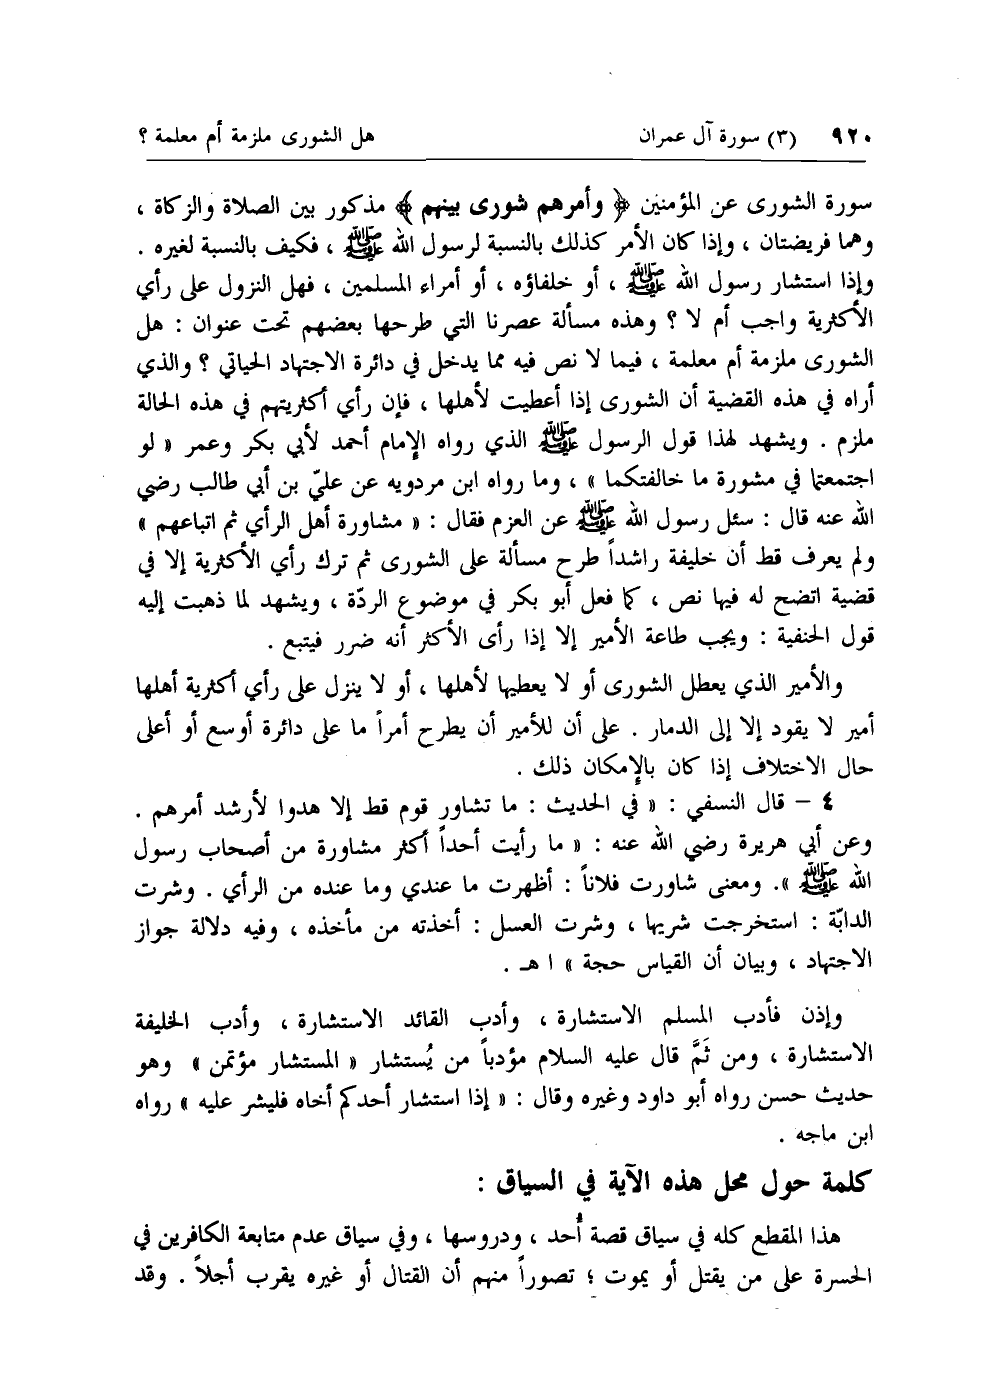 ٩٢٠ (٣) سورة آل عمران هل الشورى ملزمة أم معلمة ؟
سورة الشورى عن المؤمنين ﴿ وأمرهم شورى بينهم ﴾ مذكور بين الصلاة والزكاة ،
وهما فريضتان ، وإذا كان الأمر كذلك بالنسبة لرسول الله ﷺ ، فكيف بالنسبة لغيره .
وإذا استشار رسول الله ﷺ ، أو خلفاؤه ، أو أمراء المسلمين ، فهل النزول على رأي
الأكثرية واجب أم لا ؟ وهذه مسألة عصرنا التي طرحها بعضهم تحت عنوان : هل
الشورى ملزمة أم معلمة ، فيما لا نص فيه مما يدخل في دائرة الاجتهاد الحياتي ؟ والذي
أراه في هذه القضية أن الشورى إذا أعطيت لأهلها ، فإن رأي أكثريتهم في هذه الحالة
ملزم . ويشهد لهذا قول الرسول ﷺ الذي رواه الإمام أحمد لأبي بكر وعمر « لو
اجتمعتما في مشورة ما خالفتكما » ، وما رواه ابن مردويه عن عليّ بن أبي طالب رضي
الله عنه قال : سئل رسول الله ﷺ عن العزم فقال : « مشاورة أهل الرأي ثم اتباعهم »
ولم يعرف قط أن خليفة راشداً طرح مسألة على الشورى ثم ترك رأي الأكثرية إلا في
قضية اتضح له فيها نص ، كما فعل أبو بكر في موضوع الردّة ، ويشهد لما ذهبت إليه
قول الحنفية : ويجب طاعة الأمير إلا إذا رأى الأكثر أنه ضرر فيتبع .
والأمير الذي يعطل الشورى أو لا يعطيها لأهلها ، أو لا ينزل على رأي أكثرية أهلها
أمير لا يقود إلا إلى الدمار . على أن للأمير أن يطرح أمراً ما على دائرة أوسع أو أعلى
حال الاختلاف إذا كان بالإمكان ذلك .
٤ – قال النسفي : « في الحديث : ما تشاور قوم قط إلا هدوا لأرشد أمرهم .
وعن أبي هريرة رضي الله عنه : « ما رأيت أحداً أكثر مشاورة من أصحاب رسول
الله ﷺ ». ومعنى شاورت فلاناً : أظهرت ما عندي وما عنده من الرأي . وشرت
الدابّة : استخرجت شريها ، وشرت العسل : أخذته من مأخذه ، وفيه دلالة جواز
الاجتهاد ، وبيان أن القياس حجة » ا هـ .
وإذن فأدب المسلم الاستشارة ، وأدب القائد الاستشارة ، وأدب الخليفة
الاستشارة ، ومن ثَمَّ قال عليه السلام مؤدباً من يُستشار « المستشار مؤتمن » وهو
حديث حسن رواه أبو داود وغيره وقال : « إذا استشار أحدكم أخاه فليشر عليه » رواه
ابن ماجه .
كلمة حول محل هذه الآية في السياق :
هذا المقطع كله في سياق قصة أُحد ، ودروسها ، وفي سياق عدم متابعة الكافرين في
الحسرة على من يقتل أو يموت ؛ تصوراً منهم أن القتال أو غيره يقرب أجلاً . وقد